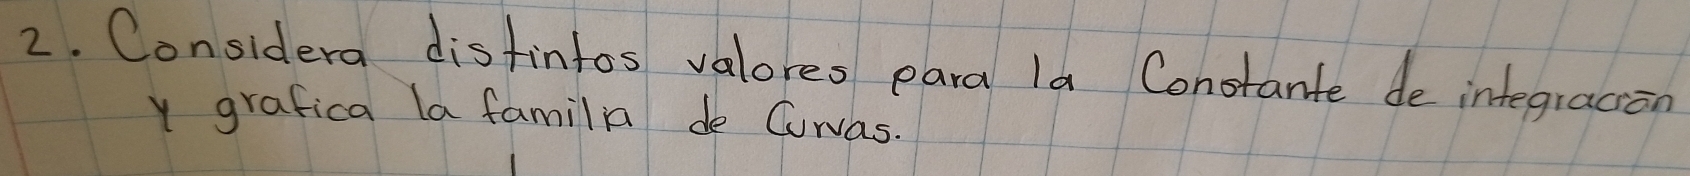 2. Considera distintos valores para la Constante de integración
y grafica la familia de Curvas.